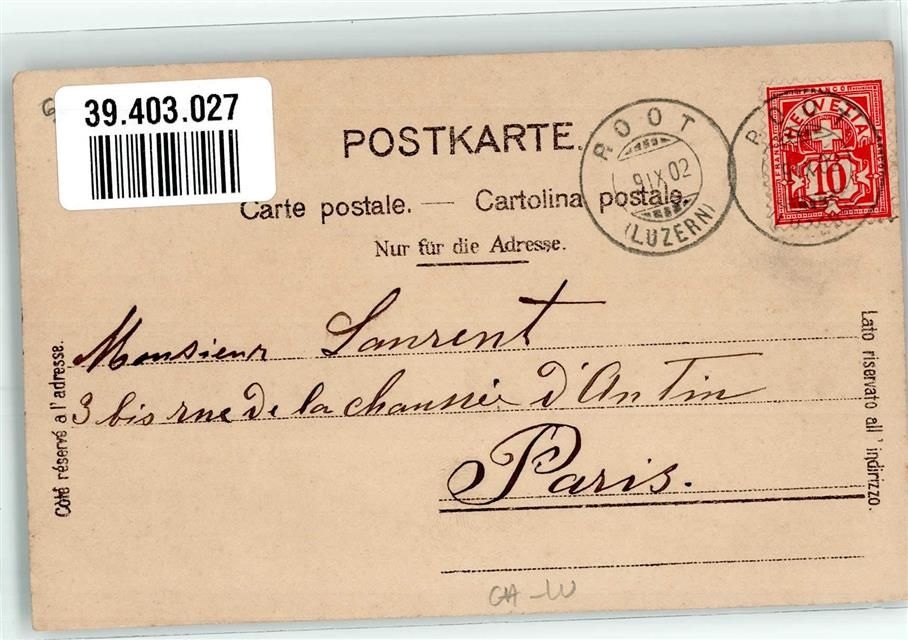 39.403.027
POSTKARTE.
Carte postale. — Cartolina postale.
Nur für die Adresse.
ROOT
9 IX 02
(LUZERN)
HELVETIA
10
Monsieur Laurent
3 bis rue de la chaussée d'Antin
Paris.
Côté réservé a l'adresse.
Lato riservato all' indirizzo.
CH-LU